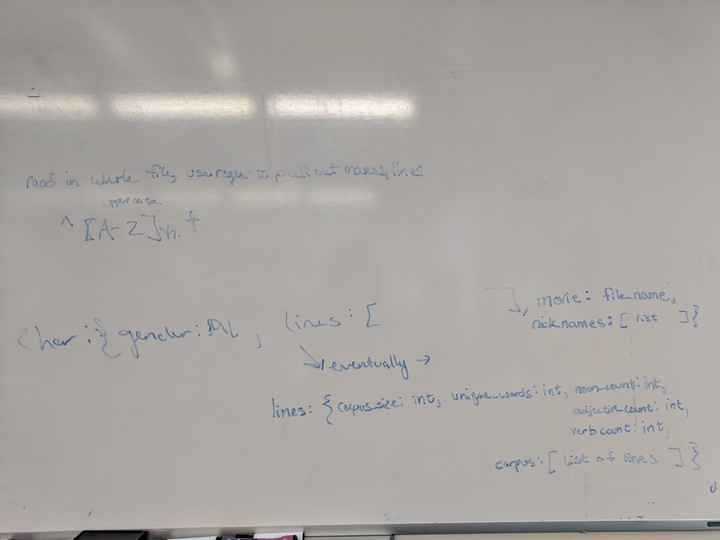 read in whole file, use regex to pull out names, lines
upper case
^ [A-Z]\n.+
char: { gender: , lines: [ ], movie: filename,
nicknames: [ list ] }
eventually →
lines: { corpus_size: int, unique_words: int, noun_count: int,
adjective_count: int,
verb count: int,
corpus: [ list of lines ] }